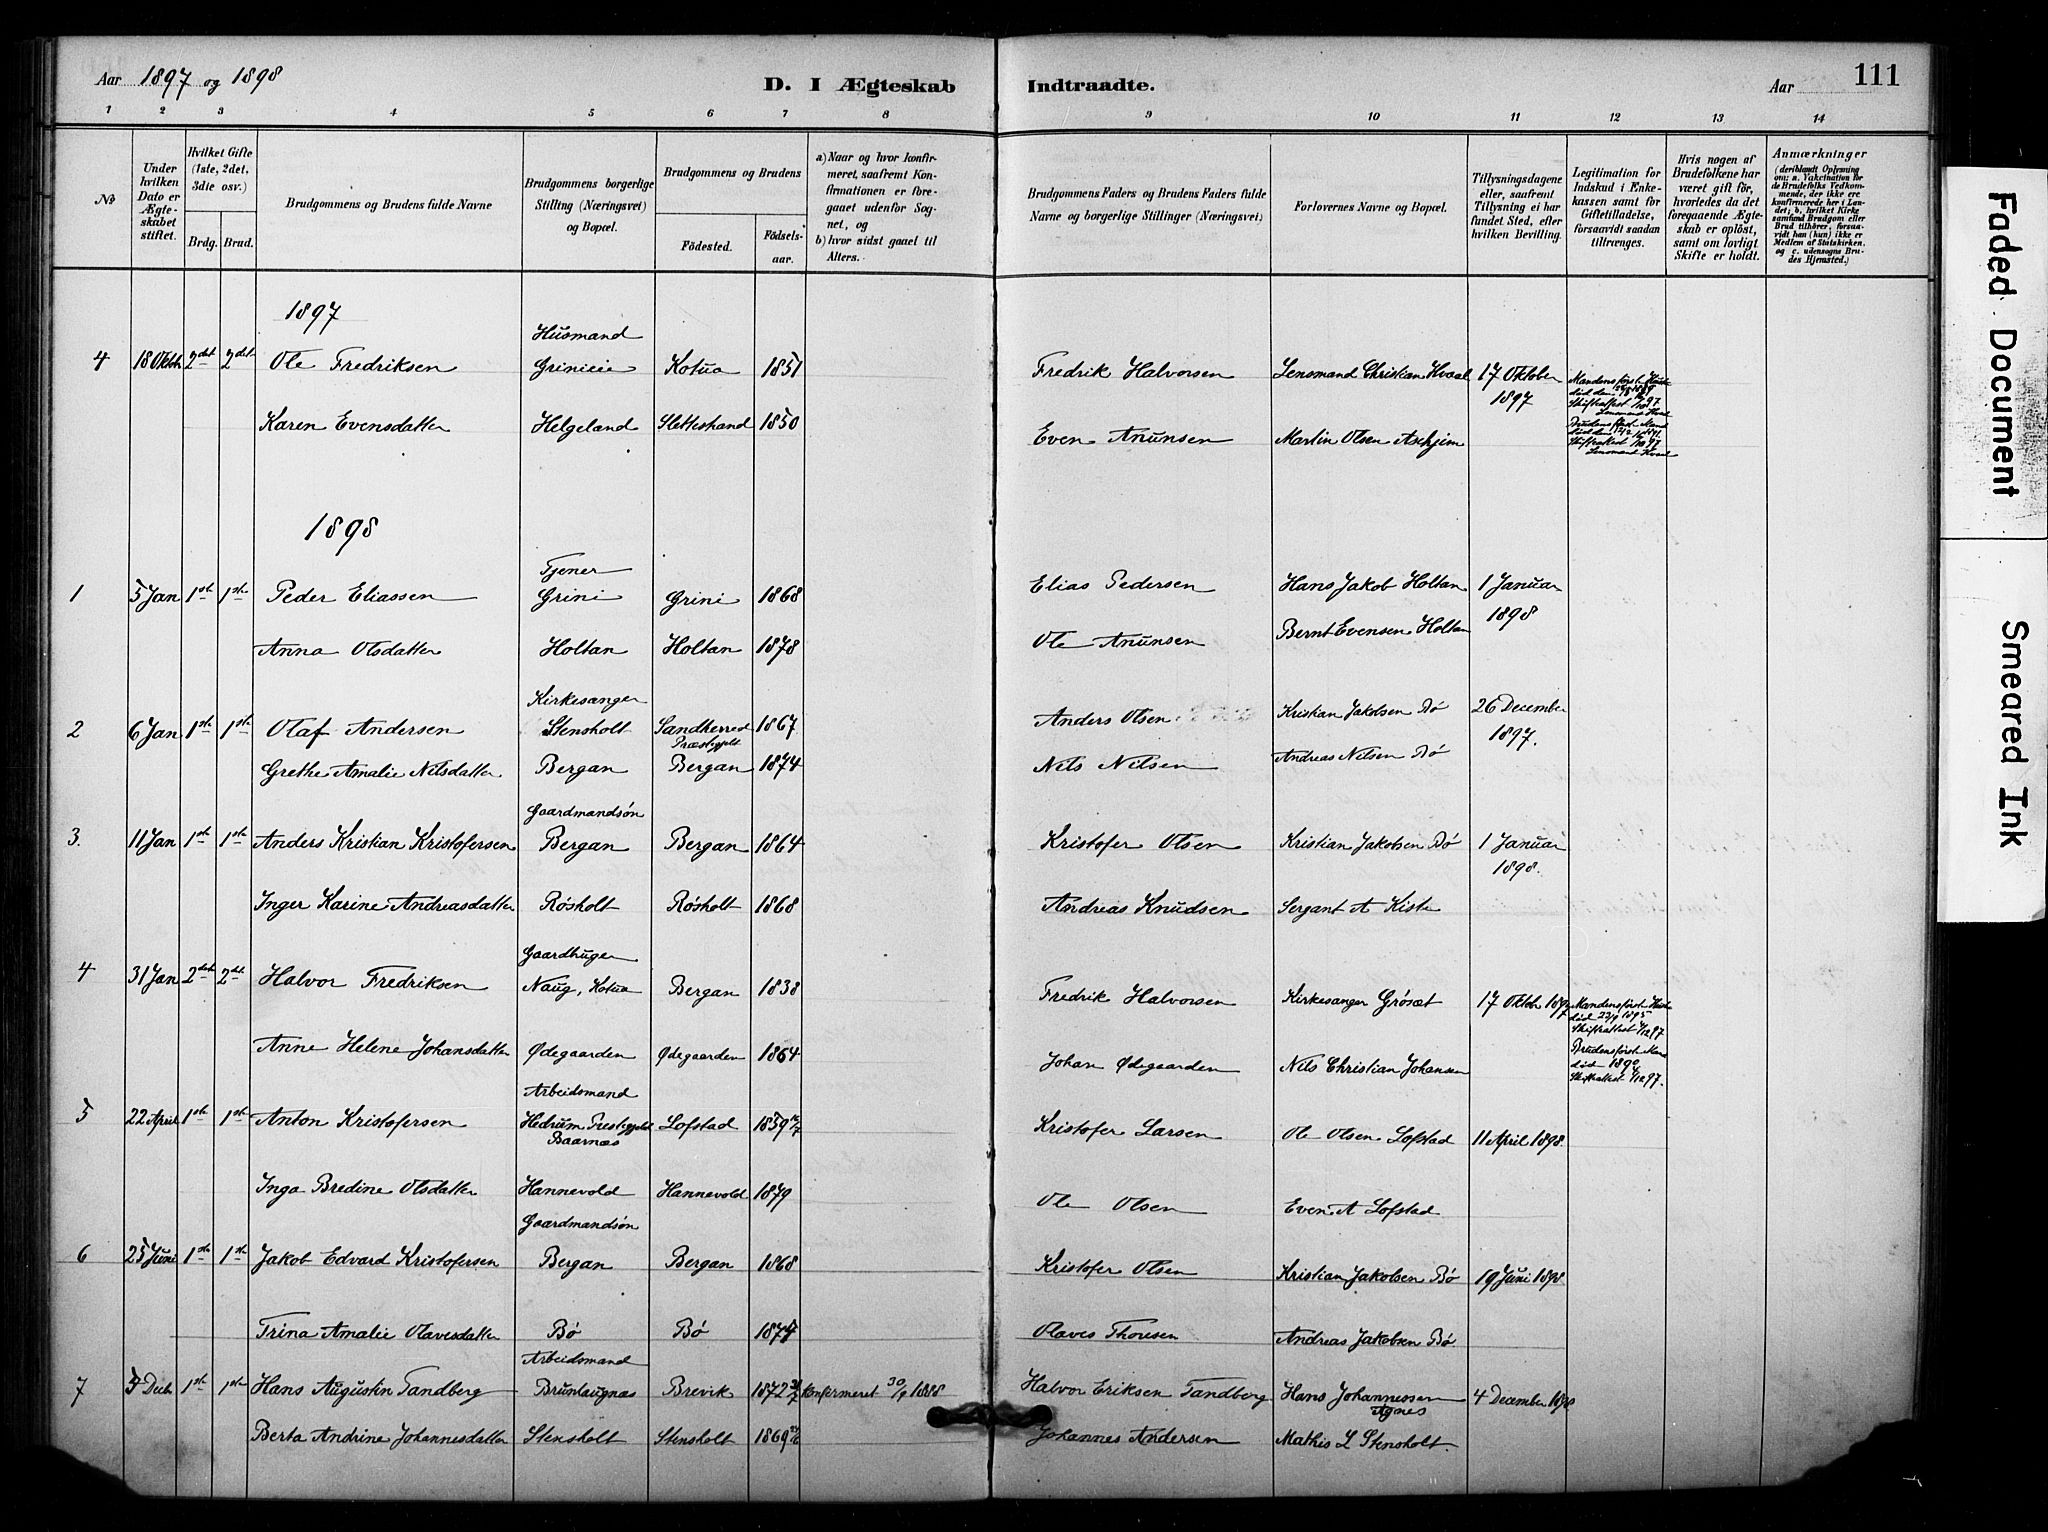 Aar 1897 og 1898
D. I Ægteskab Indtraadte.
Aar
111
1 2 3 4 5 6 7 8 9 10 11 12 13 14
№
Under hvilken Dato er Ægteskabet stiftet.
Hvilket Gifte (1ste, 2det, 3die osv.)
Brdg. Brud.
Brudgommens og Brudens fulde Navne
Brudgommens borgerlige Stilling (Næringsvei) og Bopæl.
Brudgommens og Brudens
Födested.
Födselsaar.
a) Naar og hvor konfirmeret, saafremt Konfirmationen er foregaaet udenfor Sognet, og
b) hvor sidst gaaet til Alters.
Brudgommens Faders og Brudens Faders fulde Navne og borgerlige Stillinger (Næringsvei)
Forlovernes Navne og Bopæl.
Tillysningsdagene eller, saafremt Tillysning ei har fundet Sted, efter hvilken Bevilling.
Legitimation for Indskud i Enkekassen samt for Giftetilladelse, forsaavidt saadan tiltrænges.
Hvis nogen af Brudefolkene har været gift för, hvorledes da det foregaaende Ægteskab er oplöst, samt om lovligt Skifte er holdt.
Anmærkninger
(deriblandt Oplysning om: a. Vakcination for de Brudefolks Vedkommende, der ikke ere konfirmerede her i Landet; b. hvilket Kirkesamfund Brudgom eller Brud tilhörer, forsaavidt han (hun) ikke er Medlem af Statskirken. og c. udensogns Brudes Hjemsted.)
1897
Husmand
4 18 Oktbr 2det 2det Ole Fredriksen Grinieie Kotua 1851 Fredrik Halvorsen Lensmand Christian Kvaal 17 Oktober 1897
Karen Evensdatter Helgeland Slettestrand 1850 Even Anunsen Martin Olsen Askjem
1898
Tjener
1 5 Jan 1ste 1ste Peder Eliassen Grini Grini 1868 Elias Pedersen Hans Jakob Holtan 1 Januar 1898
Anna Olsdatter Holtan Holtan 1878 Ole Anunsen Bernt Evensen Holtan
Kirkesanger
2 6 Jan 1ste 1ste Olaf Andersen Stensholt Sandherred Præstegjeld 1867 Anders Olsen Kristian Jakobsen Bø 26 December 1897.
Grethe Amalie Nilsdatter Bergan Bergan 1874 Nils Nilsen Andreas Nilsen Bø
Gaardmandsøn
3. 11 Jan 1ste 1ste Anders Kristian Kristofersen Bergan Bergan 1864 Kristofer Olsen Kristian Jakobsen Bø 1 Januar 1898.
Inger Karine Andreasdatter Røsholt Røsholt 1868 Andreas Knudsen Sergant A Kiste
Gaardbruger
4 31 Jan 2det 2det Halvor Fredriksen Naug, Kotua Bergan 1838 Fredrik Halvorsen Kirkesanger Grøsæt 17 Oktbr 1897
død 23/9 1895
Skifteattest 4/12 97
Anne Helene Johansdatter Ødegaarden Ødegaarden 1864 Johan Ødegaarden Nils Christian Johansen
død 1890
Skifteattest 4/12 97.
Arbeidsmand
5 22 April 1ste 1ste Anton Kristofersen Hedrum Prestegjeld Baarnæs Lofstad 1859 Kristofer Larsen Ole Olsen Lofstad 11 April 1898
Inga Bredine Olsdatter Hannevold Hannevold 1879 Ole Olsen Even A Lofstad
Gaardmandsøn
6 25 Juni 1ste 1ste Jakob Edvard Kristofersen Bergan Bergan 1868 Kristofer Olsen Kristian Jakobsen Bø 19 Juni 1898
Trina Amalie Olavesdatter Bø Bø 1874 Olaves Thovsen Andreas Jakobsen Bø
Arbeidsmand
7 Decb 1ste 1ste Hans Augustin Tandberg Brunlaugnæs Brevik 1872 Konfirmeret 30/9 1888 Halvor Eriksen Tandberg Hans Johannessen Agnes 4 December 1898
Berta Andrine Johannesdatter Stensholt Stensholt 1869 Johannes Andersen Mathis L Stensholt.
Faded Document
Smeared Ink